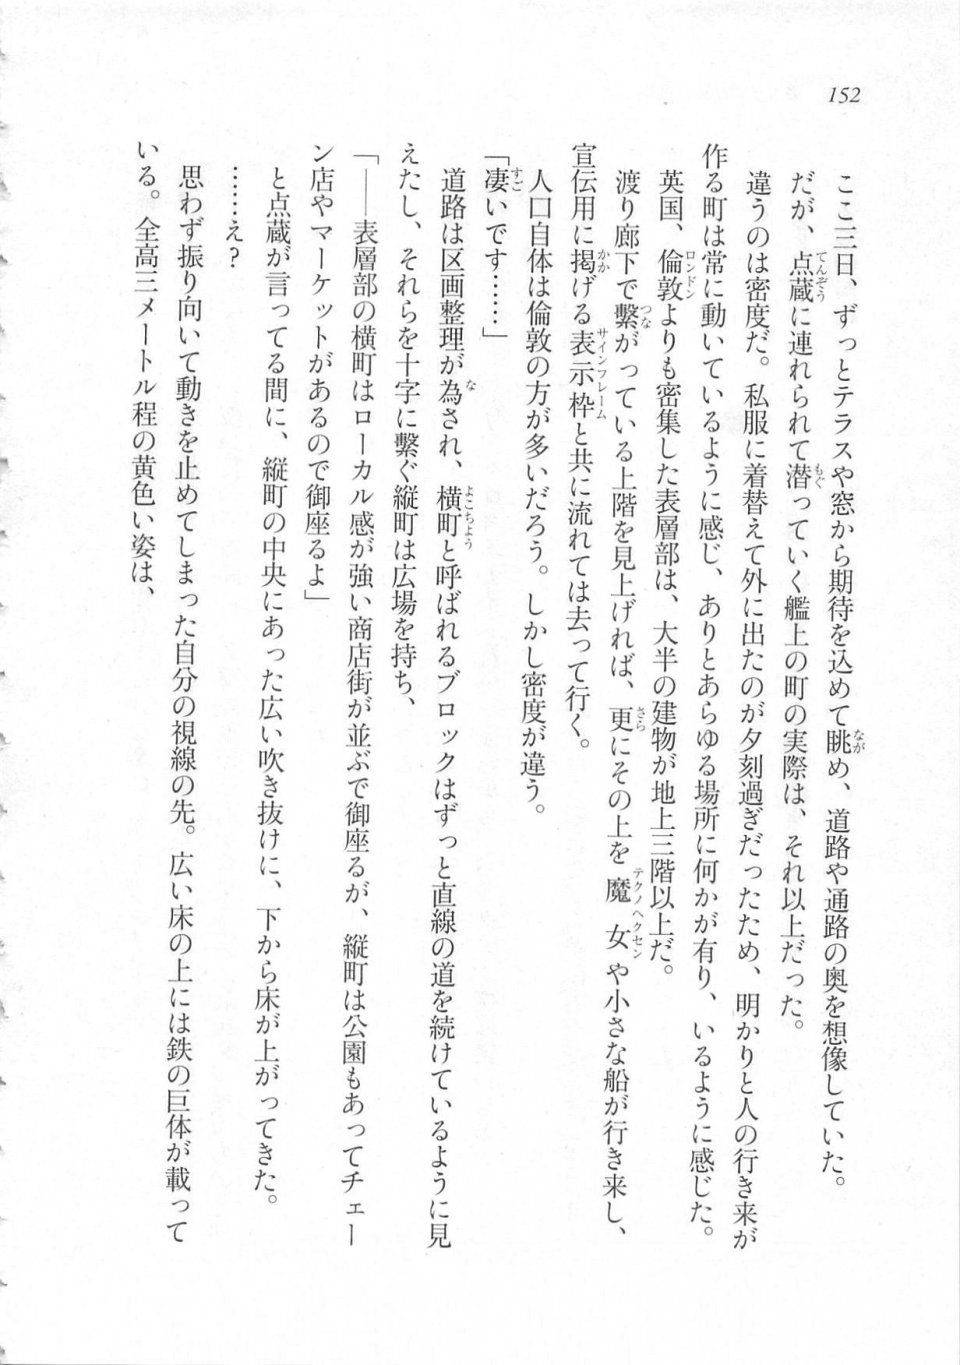 152
ここ三日、ずっとテラスや窓から期待を込めて眺め、道路や通路の奥を想像していた。
だが、点蔵に連れられて潜っていく艦上の町の実際は、それ以上だった。
違うのは密度だ。私服に着替えて外に出たのが夕刻過ぎだったため、明かりと人の行き来が
作る町は常に動いているように感じ、ありとあらゆる場所に何かが有り、いるように感じた。
英国、倫敦よりも密集した表層部は、大半の建物が地上三階以上だ。
渡り廊下で繋がっている上階を見上げれば、更にその上を魔女や小さな船が行き来し、
宣伝用に掲げる表示枠と共に流れては去って行く。
人口自体は倫敦の方が多いだろう。しかし密度が違う。
「凄いです……」
道路は区画整理が為され、横町と呼ばれるブロックはずっと直線の道を続けているように見
えたし、それらを十字に繋ぐ縦町は広場を持ち、
「――表層部の横町はローカル感が強い商店街が並ぶで御座るが、縦町は公園もあってチェー
ン店やマーケットがあるので御座るよ」
と点蔵が言ってる間に、縦町の中央にあった広い吹き抜けに、下から床が上がってきた。
……え？
思わず振り向いて動きを止めてしまった自分の視線の先。広い床の上には鉄の巨体が載って
いる。全高三メートル程の黄色い姿は、